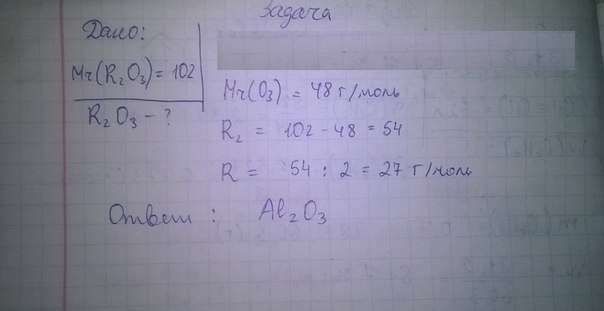 Задача
Дано:
Mr(R₂O₃) = 102
R₂O₃ - ?
Mr(O₃) = 48 г/моль
R₂ = 102 - 48 = 54
R = 54 : 2 = 27 г/моль
Ответ : Al₂O₃